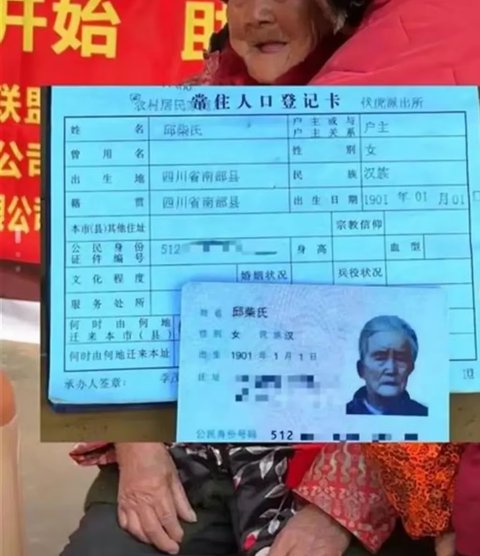 开始 助
联盟
公司
限公司
农村居民 常住人口登记卡 伏虎派出所
姓名 邱柴氏 户主或与户主关系 户主
曾用名 性别 女
出生地 四川省南部县 民族 汉族
籍贯 四川省南部县 出生日期 1901 年 01 月 01
本市(县)其他住址 宗教信仰
公民身份证件编号 512 身高 血型
文化程度 婚姻状况 兵役状况
服务处所
何时由何地迁来本市(县)
何时由何地迁来本址
承办人签章:
姓名 邱柴氏
性别 女 民族 汉
出生 1901 年 1 月 1 日
住址
公民身份号码 512